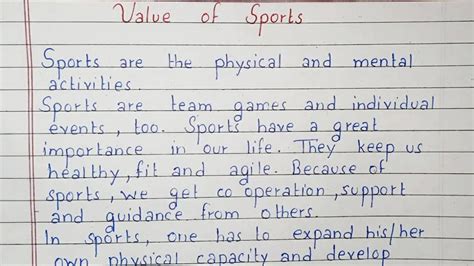 Value of Sports
Sports are the physical and mental
activities.
Sports are team games and individual
events, too. Sports have a great
importance in our life. They keep us
healthy, fit and agile. Because of
sports, we get co operation, support
and guidance from others.
In sports, one has to expand his/her
own physical capacity and develop